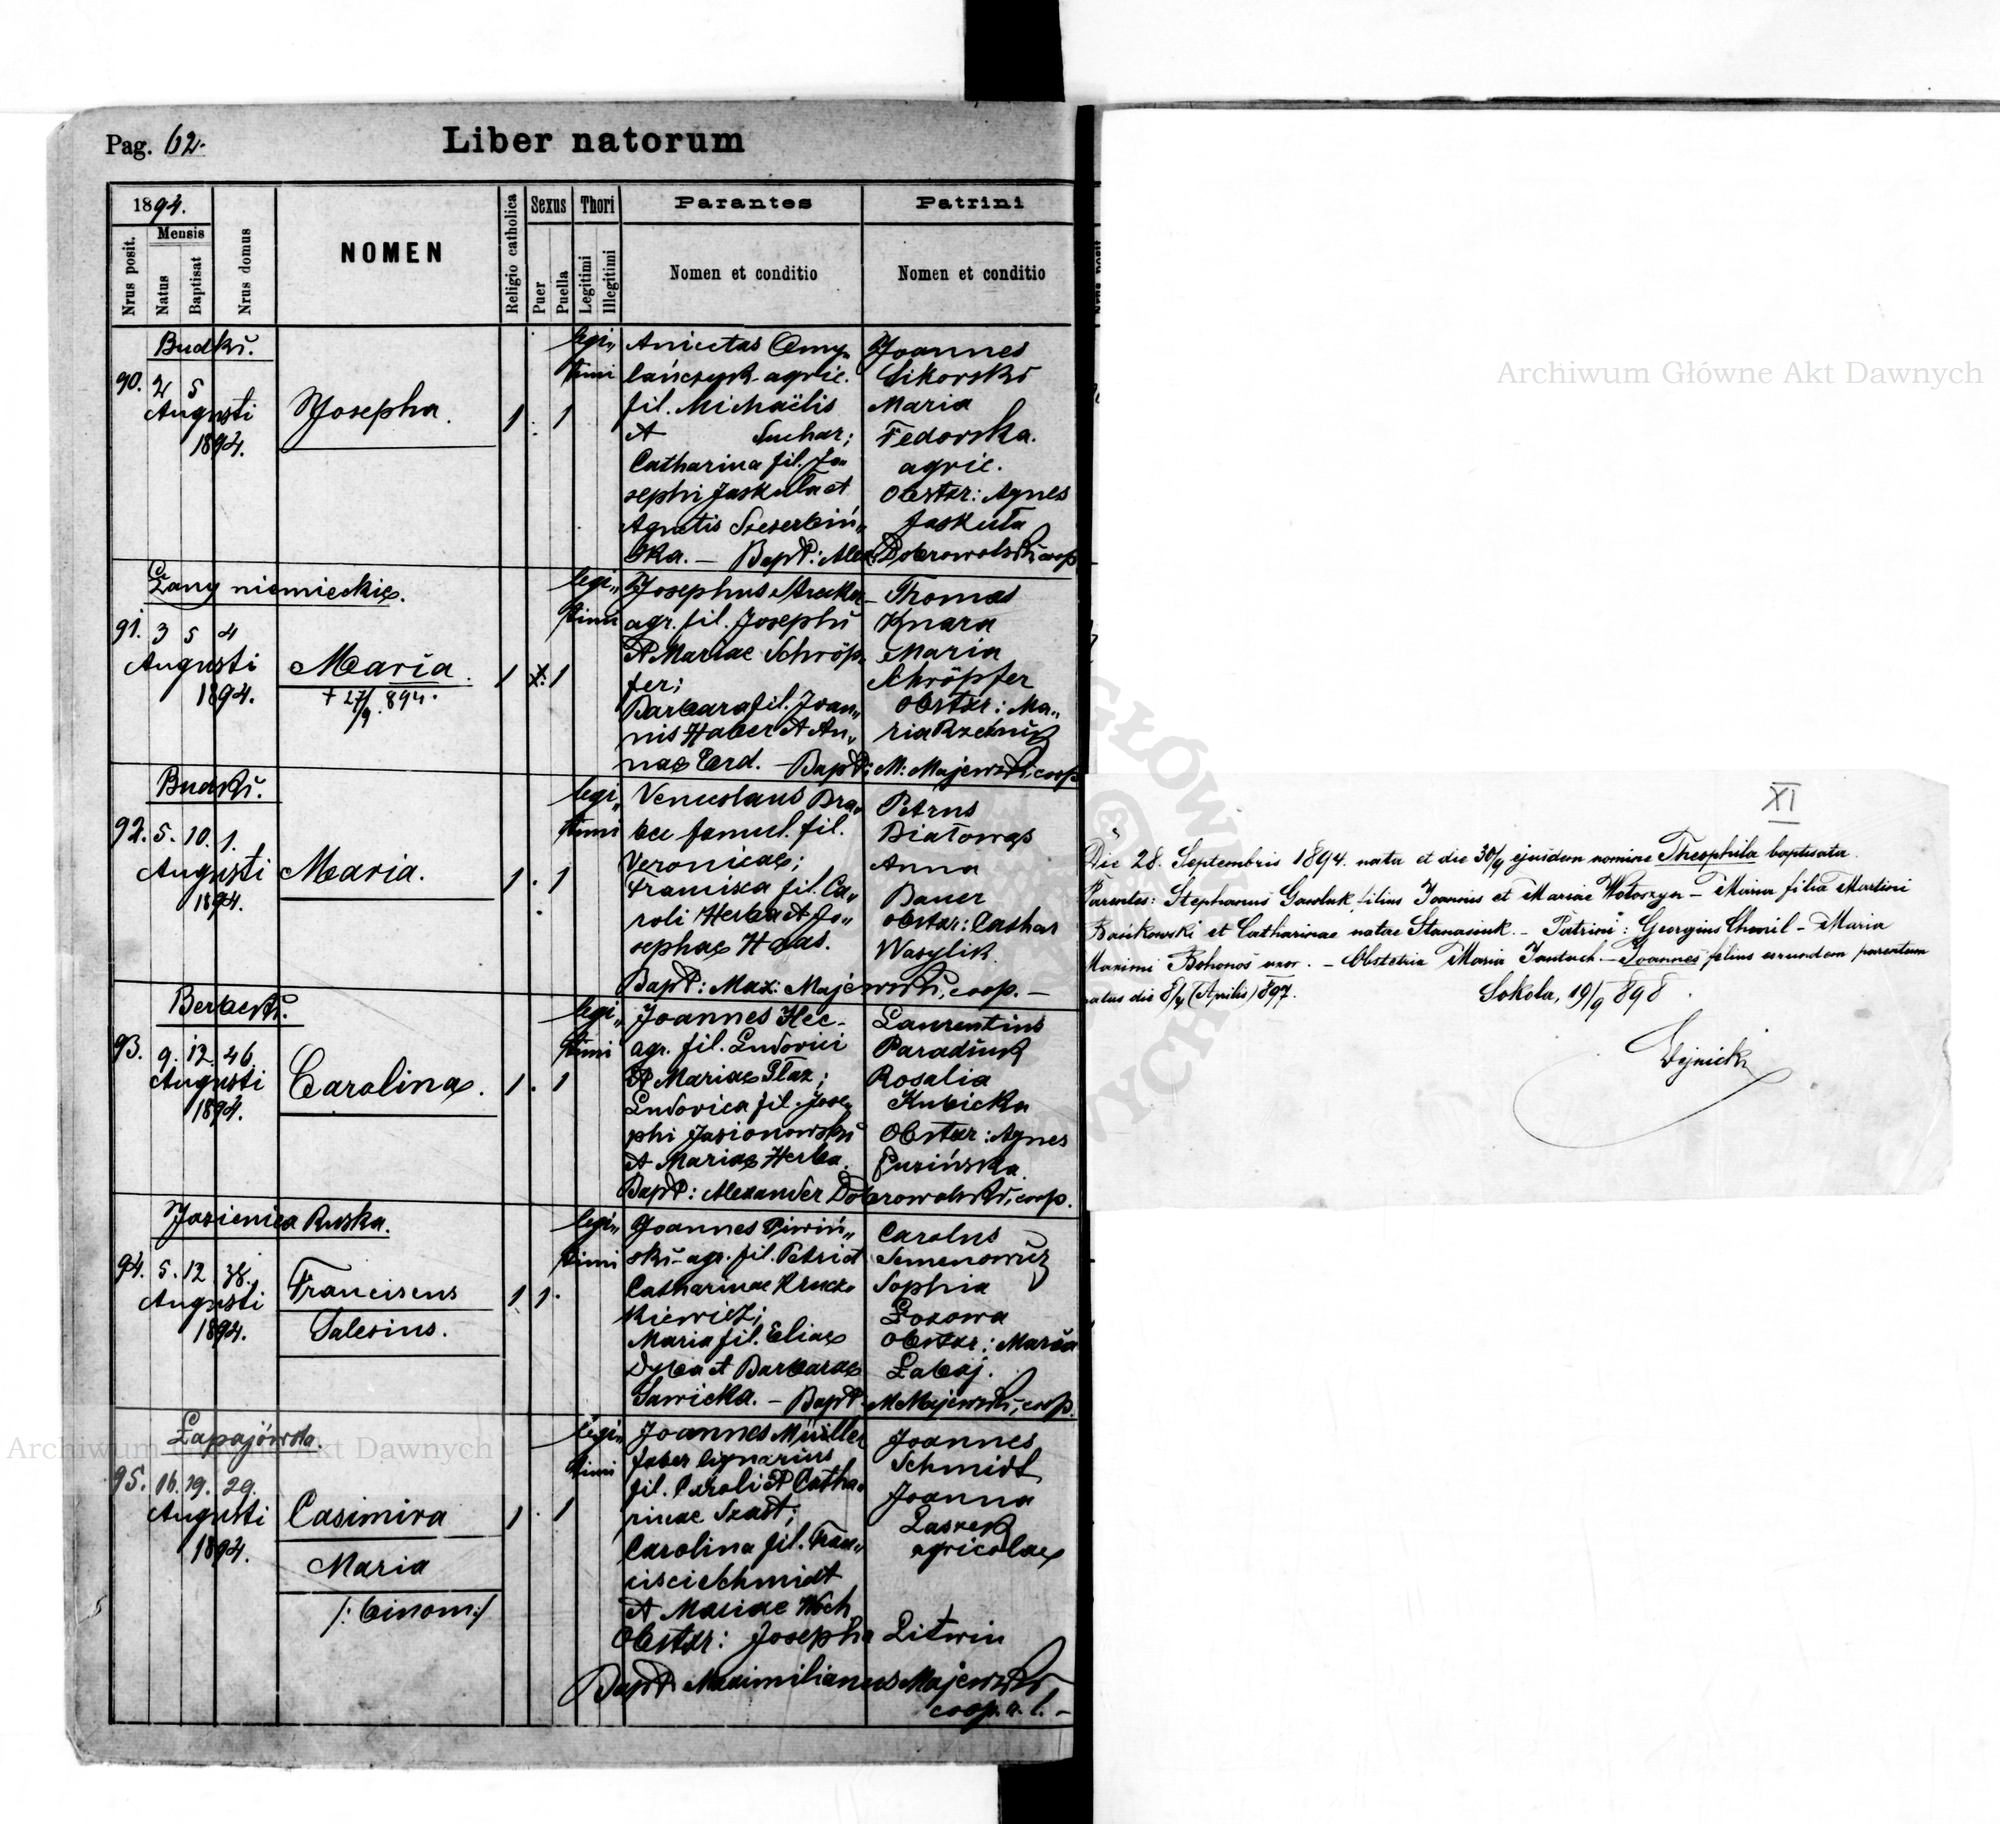 Pag. 62.
Liber natorum
1894.
Nrus posit.
Mensis
Natus
Baptisat
Nrus domus
NOMEN
Religio catholica
Sexus
Puer
Puella
Thori
Legitimi
Illegitimi
Parantes
Nomen et conditio
Patrini
Nomen et conditio
Budki.
90. 2 5
Augusti
1894.
Josepha.
1 . 1
legi„
timi
Anicetus
lańczyk agric.
fil. Michaëlis
et Suchar;
Catharina fil. Jo„
sephi Jaskuła et
Agnetis Szczerbiń„
ska. — Bapt: Alex. Dobrowolski, coop.
Joannes
Sikorski
Maria
Fedorska.
agric.
Obstetr: Agnes
Jaskuła
Łany niemieckie.
91. 3 5 4
Augusti
1894.
Maria.
+ 27/9. 894.
1 x. 1
legi„
timi
Josephus Strecker
agr. fil. Josephi
et Mariae Schröp„
fer;
Barbara fil. Joan„
nis Haber et An„
nae Erd. — Bapt: M. Majewski, coop.
Thomas
Knara
Maria
Schröpfer
Obstetr: Ma„
ria
Budki.
92. 5. 10. 1.
Augusti
1894.
Maria.
1 . 1
legi„
timi
Venceslaus Bra„
bec famul. fil.
Veronicae;
Francisca fil. Ca„
roli Herba et Jo„
sephae Haas.
Bapt: Max: Majewski, coop. —
Petrus
Białowąs
Anna
Bauer
Obstetr: Cathar
Wasylik.
Berbeki.
93. 9. 12. 46.
Augusti
1894.
Carolina.
1 . 1
legi„
timi
Joannes Hec
agr. fil. Ludovici
et Mariae Płaz;
Ludovica fil. Jose„
phi Jasionowski
et Mariae Herba.
Bapt: Alexander Dobrowolski, coop.
Laurentius
Paradiuk
Rosalia
Kubicka
Obstetr: Agnes
Guzińska
Jasienica Ruska.
94. 5. 12. 38.
Augusti
1894.
Franciscus
Salesius.
1 1.
legi„
timi
Joannes Piwiń„
ski agr. fil. Petri et
Catharinae Krucz„
kiewicz;
Maria fil. Eliae
Dyba et Barbarae
Sawicka. — Bapt: M. Majewski, coop.
Carolus
Semenowicz
Sophia
Łozowa
Obstetr: Maria
Łabaj.
Łapajówka.
95. 16. 19. 29.
Augusti
1894.
Casimira
Maria
/: binom:/
1 . 1
legi„
timi
Joannes Müller
faber lignarius
fil. Caroli et Catha„
rinae Szadt;
Carolina fil. Fran„
cisci Schmidt
et Mariae Woch
Obstetr: Josepha Litwin
Bapt: Maximilianus Majewski
coop. a. l. —
Joannes
Schmidt
Joanna
Laszek
agricolae
XI
Die 28. Septembris 1894. nata et die 30/9 ejusdem nomine Theophila baptisata.
Parentes: Stephanus Gawluk filius Joannis et Mariae Wołoszyn — Maria filia Martini
Bańkowski et Catharinae natae Stanasiuk. — Patrini: Georgius Chmil — Maria
Maximi Bohonoś uxor. — Obstetrix Maria Jantuch. — Joannes filius eorundem parentum
natus die 8/4 (Aprilis) 897.
Sokola, 19/9 898.
Archiwum Główne Akt Dawnych
Archiwum Główne Akt Dawnych